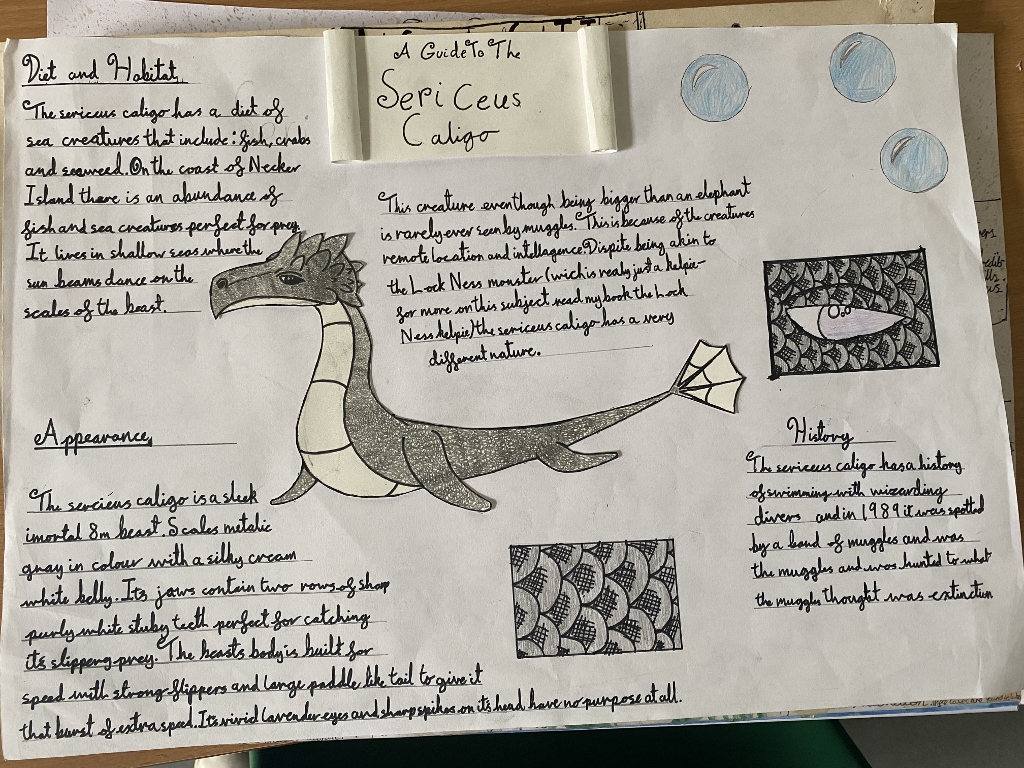 A Guide To The
Sericeus
Caligo
Diet and Habitat
The sericeus caligo has a diet of
sea creatures that include: fish, crabs
and seaweed. On the coast of Necker
Island there is an abundance of
fish and sea creatures perfect for prey.
It lives in shallow seas where the
sun beams dance on the
scales of the beast.
This creature even though being bigger than an elephant
is rarely ever seen by muggles. This is because of the creatures
remote location and intellagence. Dispite being akin to
the Lock Ness monster (wich is really just a kelpie-
for more on this subject read my book the Lock
Ness kelpie) the sericeus caligo has a very
different nature.
Appearance
The sercieus caligo is a sleek
imortal 8m beast. Scales metalic
gray in colour with a silky cream
white belly. Its jaws contain two rows of sharp
purly white stuby teeth perfect for catching
its slippery prey. The beasts body is built for
speed with strong flippers and large paddle like tail to give it
that burst of extra speed. Its vivid lavender eyes and sharp spikes on its head have no purpose at all.
History
The sericeus caligo has a history
of swimming with wizarding
divers and in 1989 it was spotted
by a band of muggles and was
the muggles and was hunted to what
the muggles thought was extinction